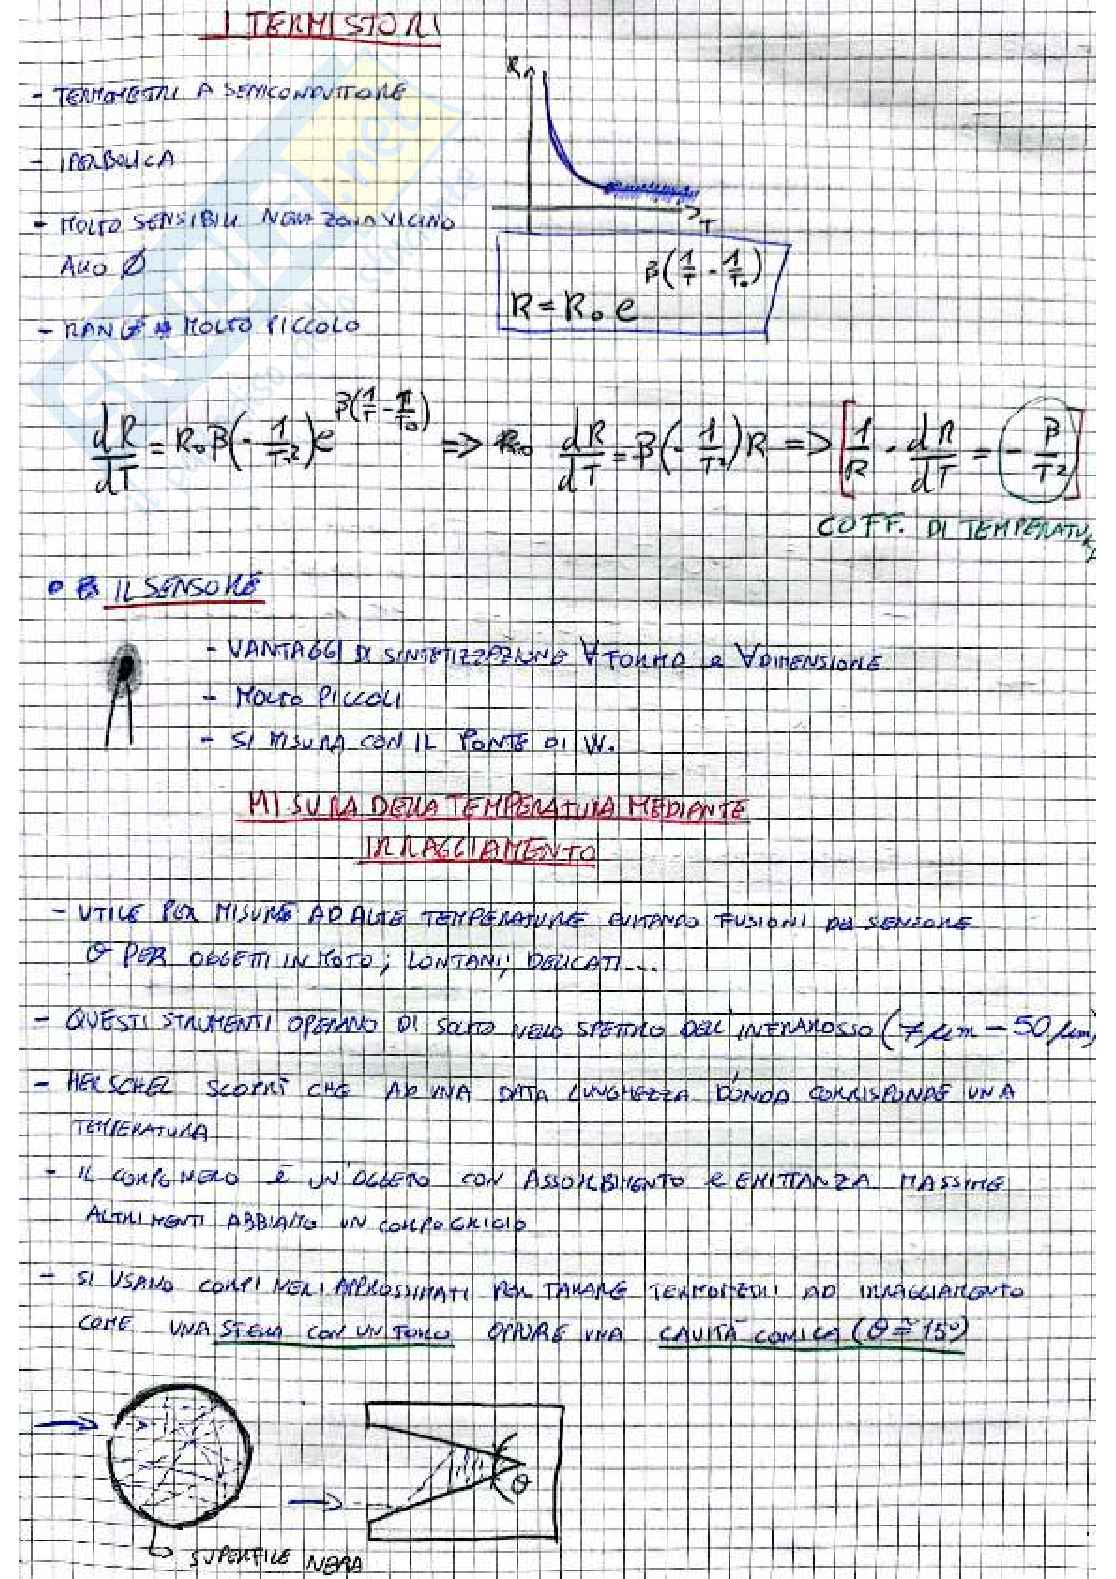 I TERMISTORI
- TERMOMETRI A SEMICONDUTTORE
- IPERBOLICA
- MOLTO SENSIBILI NELLA ZONA VICINO
ALLO Ø
- RANGE MOLTO PICCOLO
R
T
R = R₀ e^β(1/T - 1/T₀)
dR/dT = R₀ β(-1/T²) e^β(1/T - 1/T₀) => dR/dT = β(-1/T²)R => [1/R · dR/dT = -β/T²]
COFF. DI TEMPERATURA
• IL SENSORE
- VANTAGGI DI SINTETIZZAZIONE ∀ FORMA e ∀ DIMENSIONE
- MOLTO PICCOLI
- SI MISURA CON IL PONTE DI W.
MISURA DELLA TEMPERATURA MEDIANTE
IRRAGGIAMENTO
- UTILE PER MISURE AD ALTE TEMPERATURE EVITANDO FUSIONI DEL SENSORE
O PER OGGETTI IN MOTO, LONTANI, DELICATI...
- QUESTI STRUMENTI OPERANO DI SOLITO NELLO SPETTRO DELL'INFRAROSSO (7 μm - 50 μm)
- HERSCHEL SCOPRÌ CHE AD UNA DATA LUNGHEZZA D'ONDA CORRISPONDE UNA
TEMPERATURA
- IL CORPO NERO È UN OGGETO CON ASSORBIMENTO e EMITTANZA MASSIME
ALTRIMENTI ABBIAMO UN CORPO GRIGIO
- SI USANO CORPI NERI APPROSSIMATI PER TARARE TERMOMETRI AD IRRAGGIAMENTO
COME UNA SFERA CON UN FORO OPPURE UNA CAVITÀ CONICA (θ ≅ 15°)
θ
SUPERFICE NERA